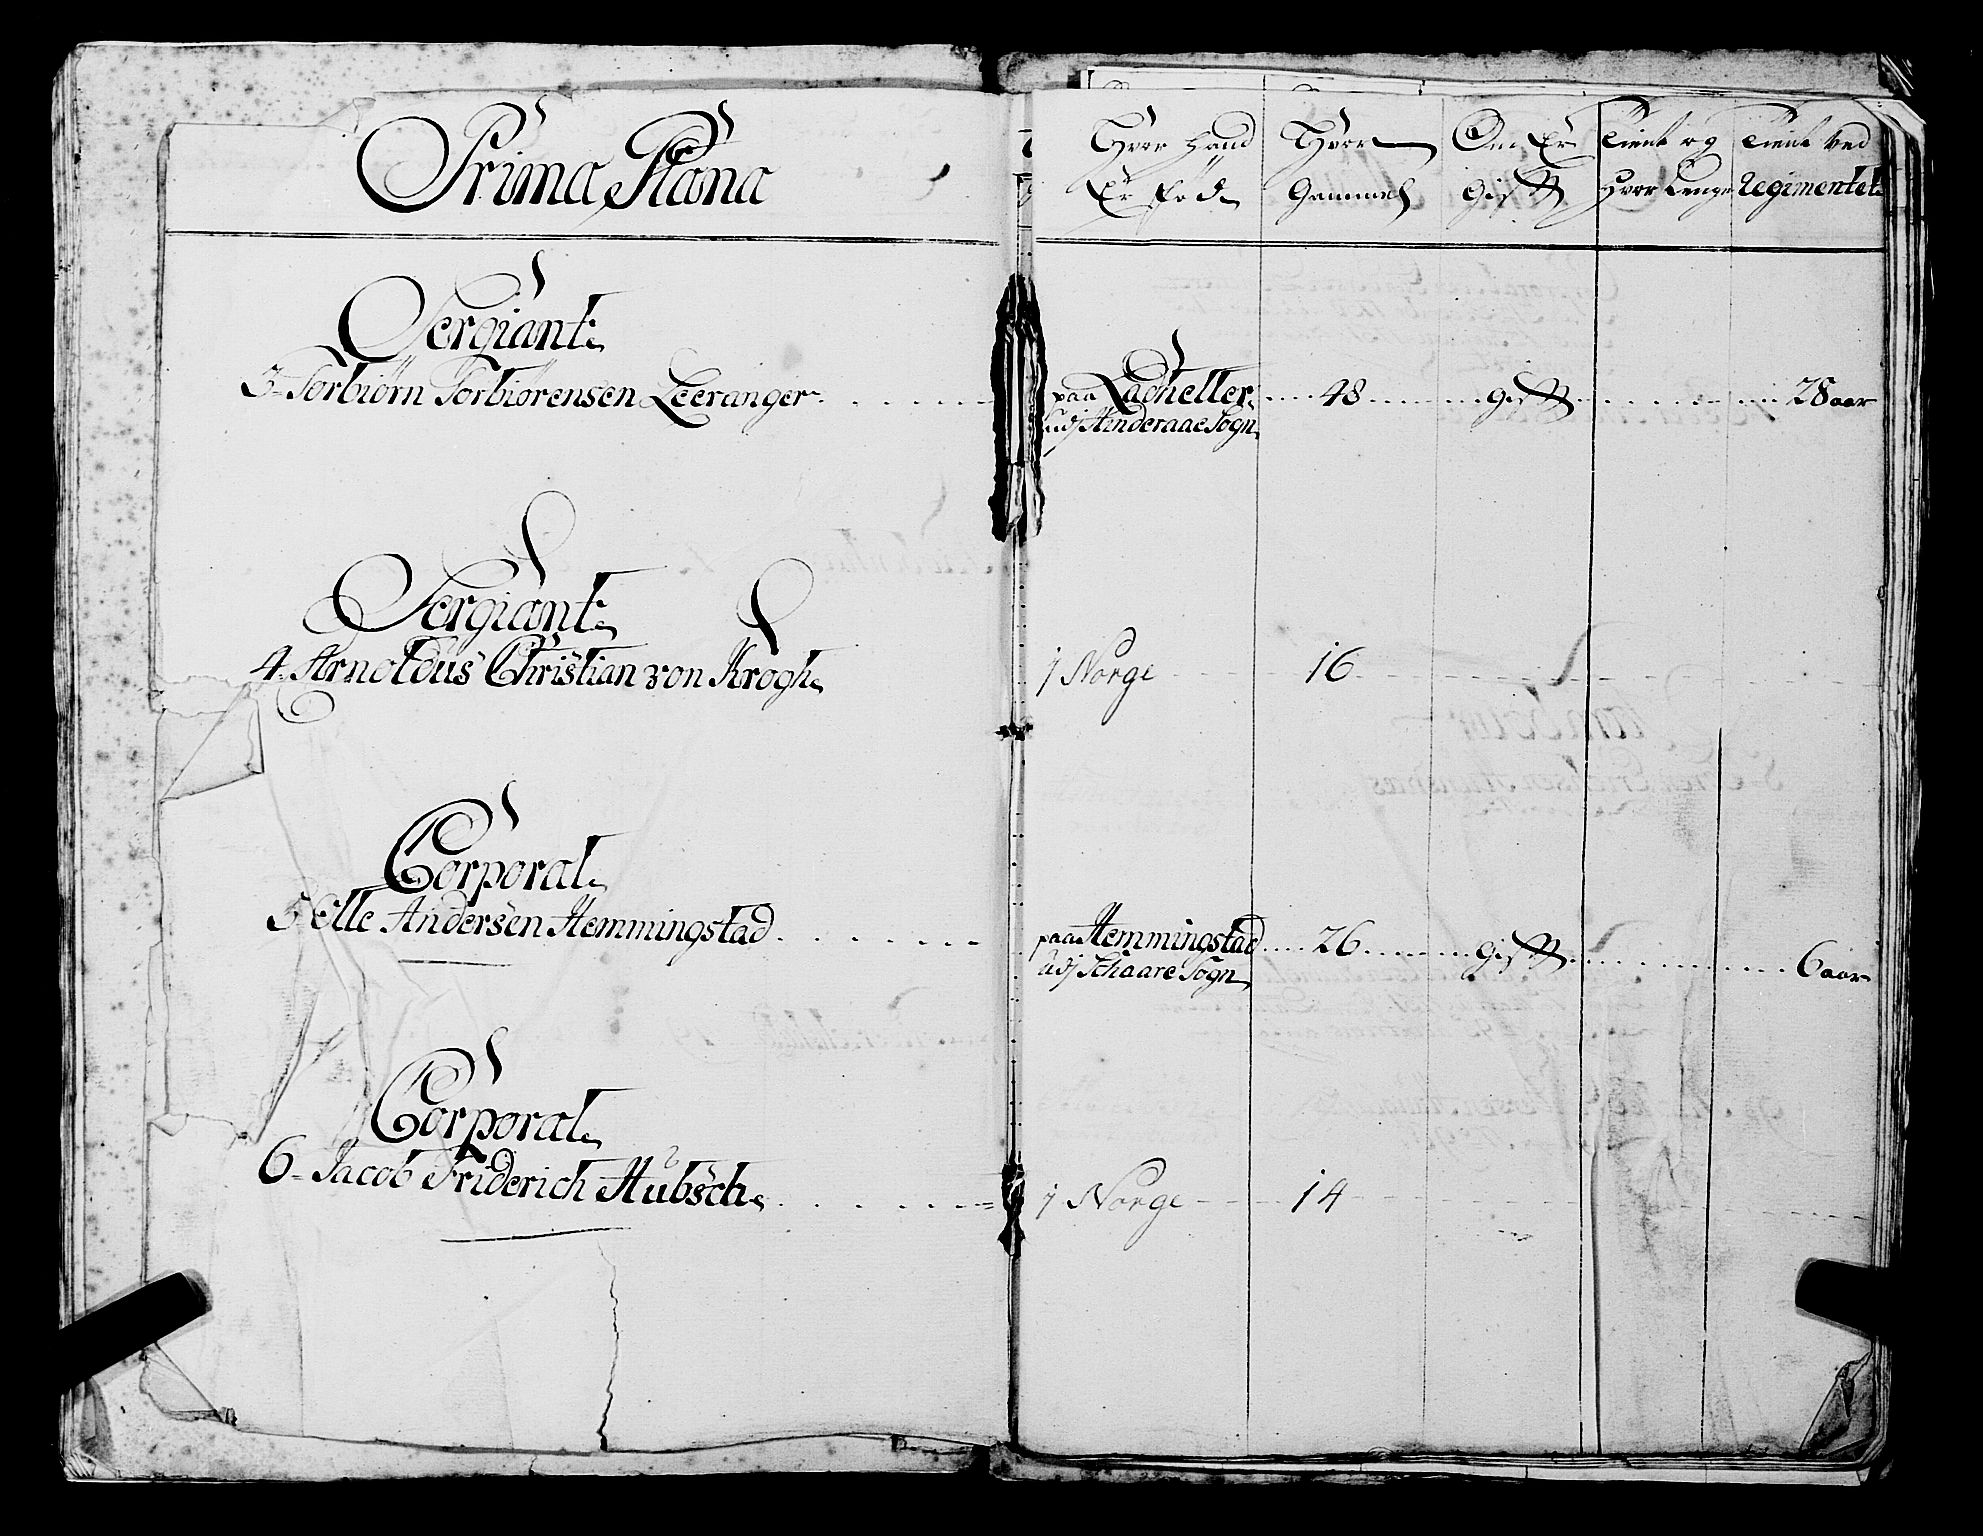 Prima Plana
Hvor Hand Er Fød
Hvor Gammel
Om Er Gift
Tient og Hvor Lenge
Tient ved Regimentet
Sergiant
3 Torbiørn Torbiørensen Leeranger
paa Ladheller
udj Hinderaae Sogn
48
Gift
28 aar
Sergiant
4 Arnoldus Christian von Krogh
j Norge
16
Corporal
5 Elle Andersen Hemmingstad
paa Hemmingstad
udj Schaare Sogn
26
Gift
6 aar
Corporal
6 Jacob Friderich Hübsch
j Norge
14